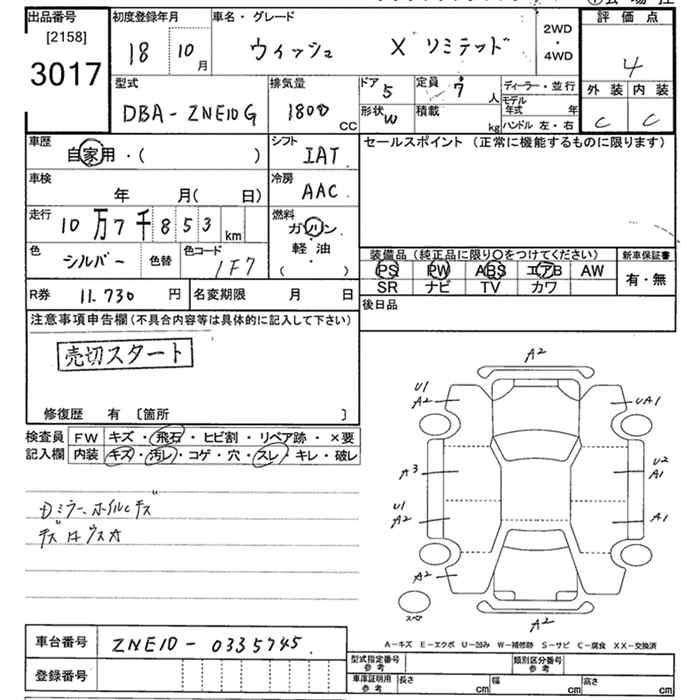 出品番号 初度登録年月 車名・グレード 評価点
[2158]
3017 18 10月 ウィッシュ X リミテッド 2WD・4WD 4
型式 排気量 ドア 5 定員 7人 ディーラー・並行 外装 内装
DBA-ZNE10G 1800 CC 形状 W 積載 kg モデル年式 年 C C
ハンドル 左・右
車歴 自家用・( ) シフト IAT セールスポイント (正常に機能するものに限ります)
車検 年 月( 日) 冷房 AAC
走行 10万7千853 km 燃料 ガソリン・軽油 ( )
色 シルバー 色替 色コード 1F7
装備品 (純正品に限り○をつけてください) 新車保証書
PS PW ABS エアB AW 有・無
SR ナビ TV カワ
R券 11.730 円 名変期限 月 日 後日品
注意事項申告欄(不具合内容等は具体的に記入して下さい)
売切スタート
修復歴 有 〔箇所 〕
検査員 FW キズ・飛石・ヒビ割・リペア跡・×要
記入欄 内装 キズ・汚レ・コゲ・穴・スレ・キレ・破レ
Dミラー、ホイルキズ
A2
U1
A2 UA1
A3 U2
A1
U1
A2 A1
A2
スペア A2
A-キズ E-エクボ U-凹み W-補修跡 S-サビ C-腐食 XX-交換済
車台番号 ZNE10-0335745
型式指定番号 参考 類別区分番号 参考
登録番号 車庫証明用 参考 長さ cm 幅 cm 高さ cm